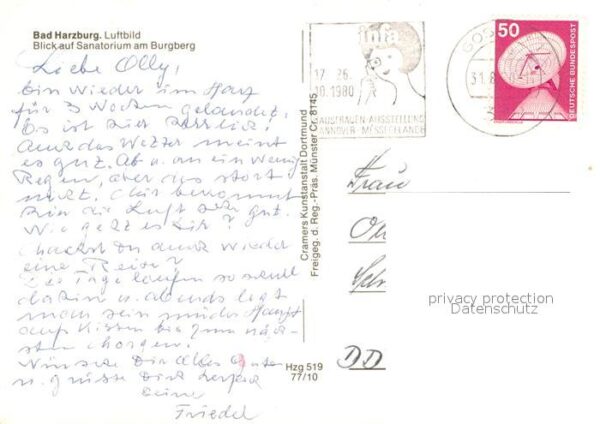 Bad Harzburg. Luftbild
Blick auf Sanatorium am Burgberg
Liebe Olly,
bin wieder im Harz
für 3 Wochen gelandet.
Es ist hier herrlich!
Auch das Wetter meint
es gut. Ab u. an ein wenig
Regen, aber das stört
nicht. Mir bekommt
die Luft sehr gut.
Wie geht es Dir?
Machst Du auch wieder
eine Reise?
Die Tage laufen so schnell
dahin u. abends legt
man sein müdes Haupt
aufs Kissen bis zum näch-
sten Morgen.
Wünsche Dir Alles Gute
u. grüsse Dich
Deine
Friedel
Cramers Kunstanstalt Dortmund
Freigeg. d. Reg.-Präs. Münster Cr. 8145
Hzg 519
77/10
infa
17 26.
10.1980
HAUSFRAUEN-AUSSTELLUNG
HANNOVER-MESSEGELÄNDE
GOS
31.8
50
DEUTSCHE BUNDESPOST
Frau
DD
privacy protection
Datenschutz